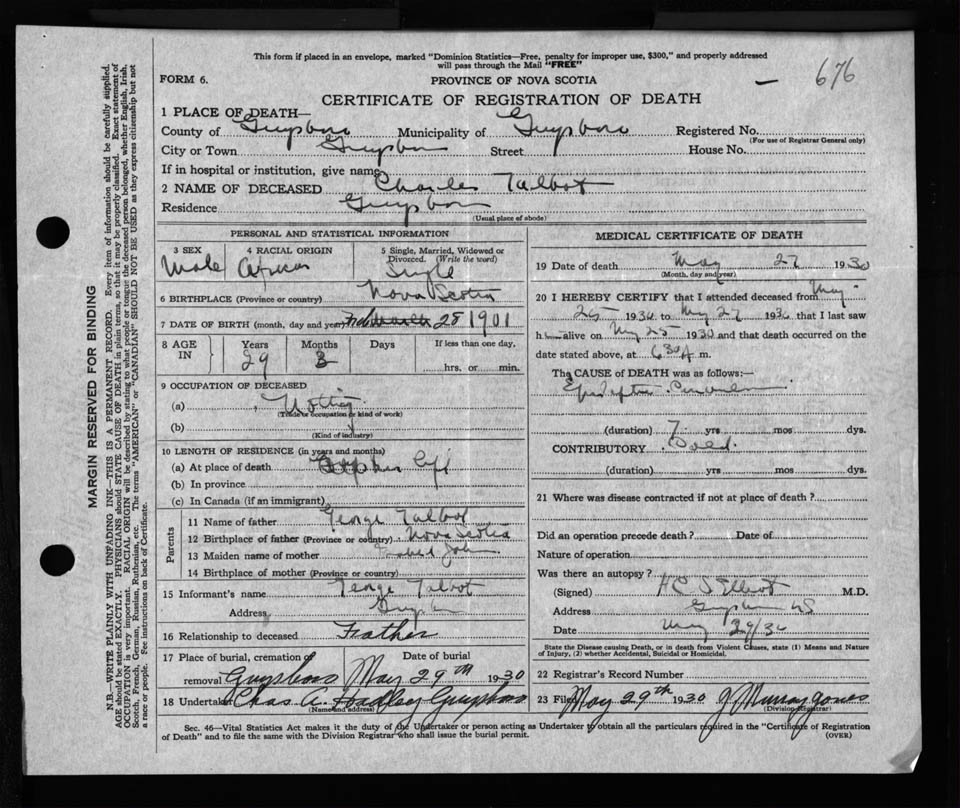 This form if placed in an envelope, marked "Dominion Statistics—Free, penalty for improper use, $300," and properly addressed
will pass through the Mail "FREE"
FORM 6.
PROVINCE OF NOVA SCOTIA
676
CERTIFICATE OF REGISTRATION OF DEATH
1 PLACE OF DEATH—
County of Guysboro Municipality of Guysboro Registered No.
(For use of Registrar General only)
City or Town Guysboro Street House No.
If in hospital or institution, give name
2 NAME OF DECEASED Charles Talbot
Residence Guysboro
(Usual place of abode)
PERSONAL AND STATISTICAL INFORMATION
3 SEX 4 RACIAL ORIGIN 5 Single, Married, Widowed or
Divorced. (Write the word)
Male African Single
6 BIRTHPLACE (Province or country) Nova Scotia
7 DATE OF BIRTH (month, day and year) 28 1901
8 AGE IN Years Months Days If less than one day,
29 3 hrs. or min.
9 OCCUPATION OF DECEASED
(a) Nothing
(Trade or occupation or kind of work)
(b)
(Kind of industry)
10 LENGTH OF RESIDENCE (in years and months)
(a) At place of death
(b) In province
(c) In Canada (if an immigrant)
Parents
11 Name of father George Talbot
12 Birthplace of father (Province or country) Nova Scotia
13 Maiden name of mother
14 Birthplace of mother (Province or country)
15 Informant's name George Talbot
Address
16 Relationship to deceased Father
17 Place of burial, cremation or Date of burial
removal Guysboro May 29th 1930
18 Undertaker Chas A. Hadley Guysboro
(Name and address)
MEDICAL CERTIFICATE OF DEATH
19 Date of death May 27 1930
(Month, day and year)
20 I HEREBY CERTIFY that I attended deceased from May
25 1930 to May 27 1930 that I last saw
h alive on May 25 1930 and that death occurred on the
date stated above, at 6 30 A m.
The CAUSE of DEATH was as follows:—
(duration) 7 yrs mos dys.
CONTRIBUTORY
(duration) yrs mos dys.
21 Where was disease contracted if not at place of death?
Did an operation precede death? Date of
Nature of operation
Was there an autopsy?
(Signed) M.D.
Address
Date May 29/30
State the Disease causing Death, or in death from Violent Causes, state (1) Means and Nature
of Injury, (2) whether Accidental, Suicidal or Homicidal.
22 Registrar's Record Number
23 Filed May 29th 1930 J Murray Jones
(Division Registrar)
Sec. 46—Vital Statistics Act makes it the duty of the Undertaker or person acting as Undertaker to obtain all the particulars required in the "Certificate of Registration
of Death" and to file the same with the Division Registrar who shall issue the burial permit.
(OVER)
MARGIN RESERVED FOR BINDING
N.B.—WRITE PLAINLY WITH UNFADING INK—THIS IS A PERMANENT RECORD. Every item of information should be carefully supplied.
AGE should be stated EXACTLY. PHYSICIANS should STATE CAUSE OF DEATH in plain terms, so that it may be properly classified. Exact statement of
OCCUPATION is very important. RACIAL ORIGIN will be described by stating to what people or tongue the deceased person belonged, whether English, Irish,
Scotch, French, German, Russian, Ruthenian, etc. The terms "AMERICAN" or "CANADIAN" SHOULD NOT BE USED as they express citizenship but not
a race or people. See instructions on back of Certificate.